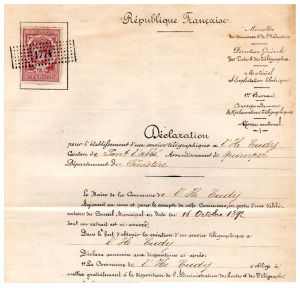 République Française
Ministère
du Commerce & de l'Industrie
Direction Générale
des Postes & des Télégraphes
Matériel
& Exploitation Électrique
1er Bureau
Correspondance
& Réclamations Télégraphiques
Réseau cantonal
Déclaration
pour l'établissement d'un service télégraphique à l'Ile Tudy
Canton de Pont l'abbé Arrondissement de Quimper
Département du Finistère
Le Maire de la Commune de l'Ile Tudy
Agissant au nom et pour le compte de cette Commune, en vertu d'une délibé-
ration du Conseil Municipal en date du 16 Octobre 1892
dont un extrait est ci-annexé;
Dans le but d'obtenir la création d'un service télégraphique
à l'Ile Tudy
Déclare souscrire aux dispositions ci-après:
1° La Commune de l'Ile Tudy s'oblige à
mettre gratuitement à la disposition de l'Administration des Postes et des Télégraphes